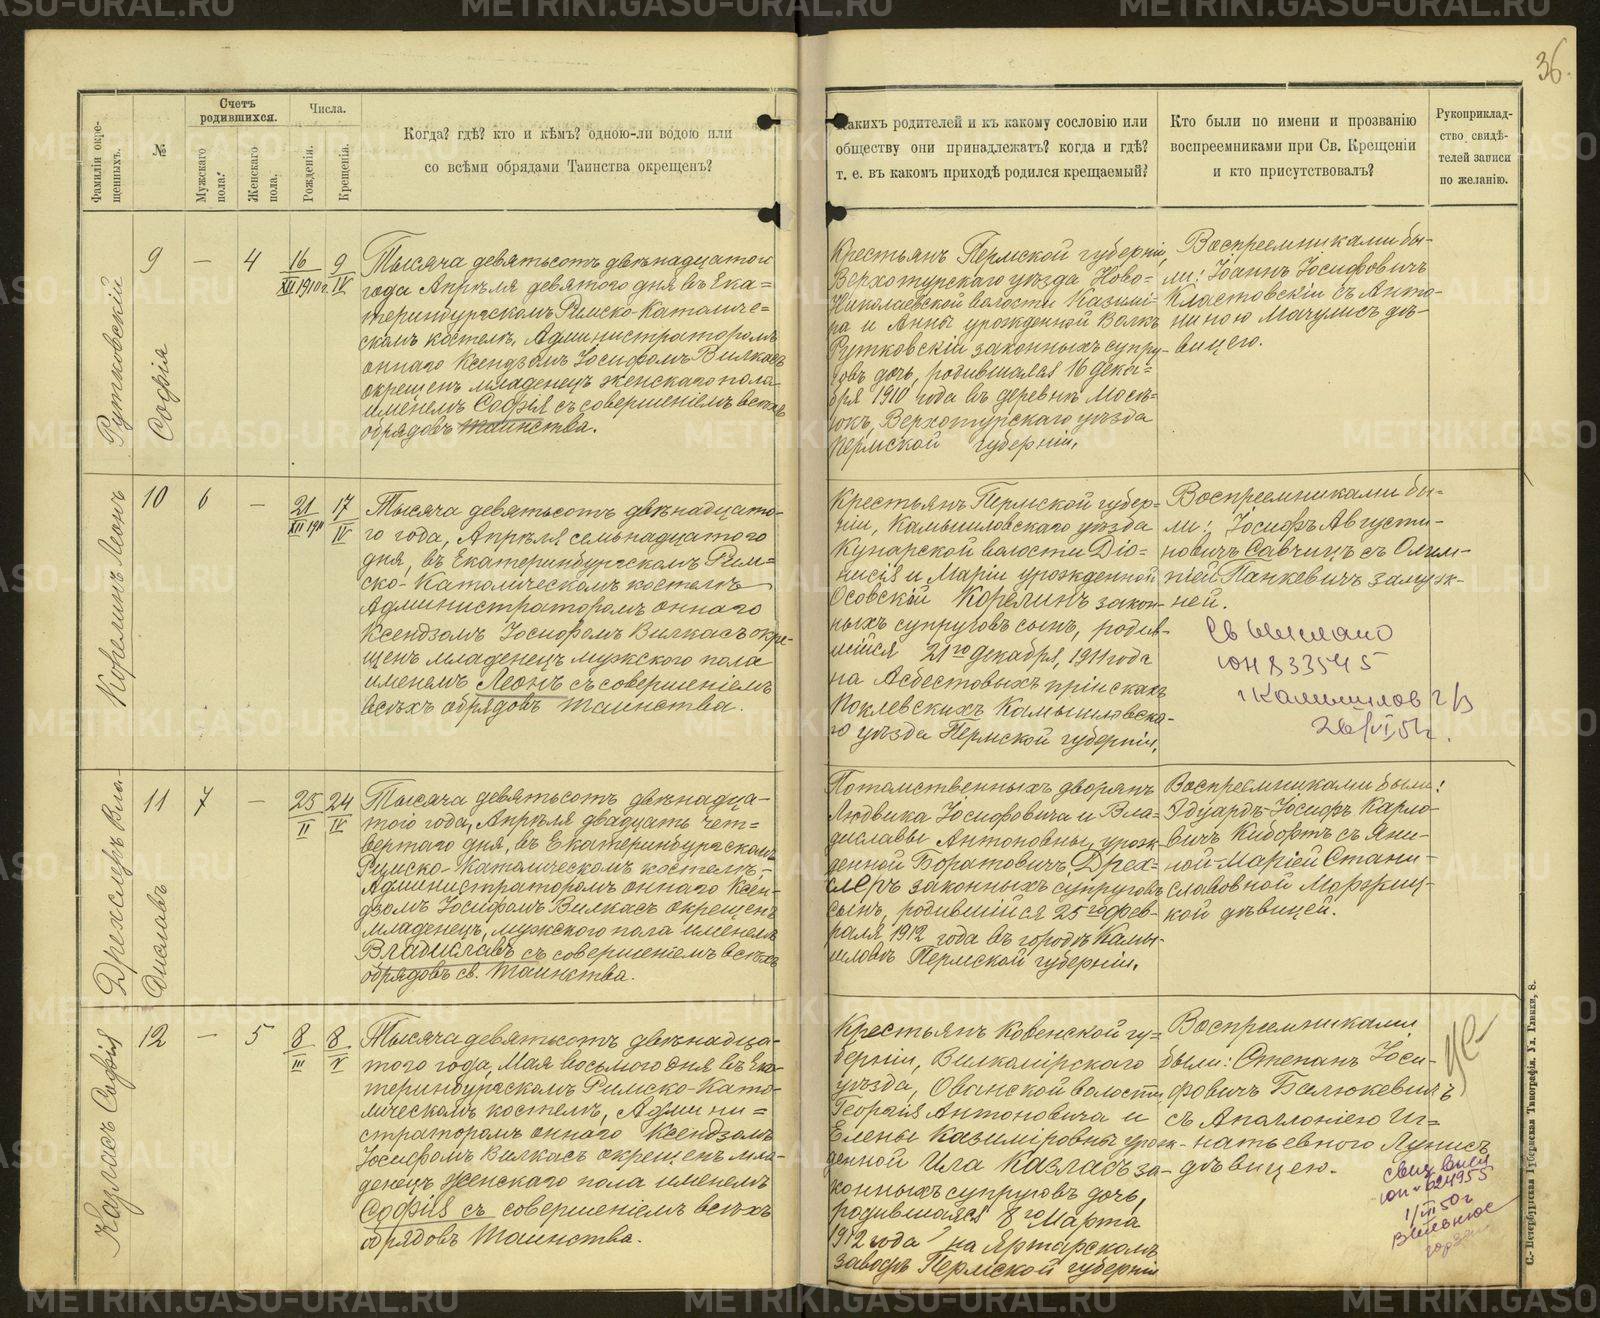 36.
Фамиліи окре-
щенныхъ.
№
Счетъ
родившихся.
Мужскаго
пола.
Женскаго
пола.
Числа.
Рожденія.
Крещенія.
Когда? гдѣ? кто и кѣмъ? одною-ли водою или
со всѣми обрядами Таинства окрещенъ?
Какихъ родителей и къ какому сословію или
обществу они принадлежатъ? когда и гдѣ?
т. е. въ какомъ приходѣ родился крещаемый?
Кто были по имени и прозванію
воспреемниками при Св. Крещеніи
и кто присутствовалъ?
Рукоприклад-
ство свидѣ-
телей записи
по желанію.
Рутковскій
Софія
9
—
4
16
XII 1910 г.
9
IV
Тысяча девятьсотъ двѣнадцатаго
года Апрѣля девятого дня въ Ека=
теринбургскомъ Римско-Католиче=
скомъ костелѣ, Администраторомъ
оннаго Ксендзомъ Іосифомъ Вилкасъ
окрещенъ младенецъ женскаго пола
именемъ Софія съ совершеніемъ всѣхъ
обрядовъ таинства.
Крестьянъ Пермской губерніи,
Верхотурскаго уѣзда Ново-
Николаевской волости Казими-
ра и Анны урожденной Волкъ
Рутковскій законныхъ супру-
говъ дочь, родившаяся 16 дека-
бря 1910 года въ деревнѣ
Верхотурскаго уѣзда
Пермской губерніи.
Воспреемниками бы-
ли: Іоаннъ Іосифовичъ
Кластовскій съ Анто-
ниною Мачулисъ дѣ-
вицею.
Корелинъ Леонъ
10
6
—
21
XII 1911
17
IV
Тысяча девятьсотъ двѣнадцато-
го года, Апрѣля семьнадцатого
дня, въ Екатеринбургскомъ Рим-
ско-Католическомъ костелѣ
Администраторомъ оннаго
Ксендзомъ Іосифомъ Вилкасъ окре-
щенъ младенецъ мужского пола
именемъ Леонъ съ совершеніемъ
всѣхъ обрядовъ таинства.
Крестьянъ Пермской губер-
ніи, Камышловскаго уѣзда
Кунарской волости Діо-
нисія и Маріи урожденной
Осовскій Корелинъ закон-
ныхъ супруговъ сынъ, родив-
шійся 21го декабря, 1911 года
на Асбестовыхъ пріискахъ
Поклевскихъ Камышловска-
го уѣзда Пермской губерніи.
Воспреемниками бы-
ли: Іосифъ Августи-
новичъ Савчицъ съ Олим-
піей Панкевичъ замуж-
ней.
Св выслано
ЮН 833545
г Камышлов
26/VI 51г.
Дрекслеръ Вла-
диславъ
11
7
—
25
II
24
IV
Тысяча девятьсотъ двѣнадца-
того года, Апрѣля двадцать чет-
вертаго дня, въ Екатеринбургскомъ
Римско-Католическомъ костелѣ,
Администраторомъ оннаго Ксен-
дзомъ Іосифомъ Вилкасъ окрещенъ
младенецъ, мужского пола именемъ
Владиславъ съ совершеніемъ всѣхъ
обрядовъ св. таинства.
Потомственныхъ дворянъ
Людвика Іосифовича и Вла-
диславы Антоновны, урож-
денной Боратовичъ Дрек-
слеръ законныхъ супруговъ
сынъ, родившійся 25го Фев-
раля 1912 года въ городѣ Камы-
шловѣ Пермской губерніи.
Воспреемниками были:
Эдуардъ-Іосифъ Карло-
вичъ Кидортъ съ Яни-
ной-Маріей Стани-
славовной Моржиц-
кой дѣвицей.
Казласъ Софія
12
—
5
8
III
8
V
Тысяча девятьсотъ двѣнадца-
того года, Мая восьмого дня въ Ека-
теринбургскомъ Римско-Като-
лическомъ костелѣ, Админи=
страторомъ оннаго Ксендзомъ
Іосифомъ Вилкасъ окрещенъ мла-
денецъ женскаго пола именемъ
Софія съ совершеніемъ всѣхъ
обрядовъ таинства.
Крестьянъ Ковенской гу-
берніи, Вилкомірскаго
уѣзда, Ованской волости
Георгія Антоновича и
Елены Казиміровны урож-
денной Ила Казласъ за-
конныхъ супруговъ дочь,
родившаяся 8го Марта
1912 года на Яртарскомъ
заводѣ Пермской губерніи
Воспреемниками
были: Степанъ Іоси-
фовичъ Балюкевичъ
съ Аполлоніею Иг-
натьевного Лунисъ
дѣвицею.
свид выел
ЮН-024955
1/III 50 г
С.-Петербургская Губернская Типографія. Ул. Глинки, 8.
METRIKI.GASO-URAL.RU